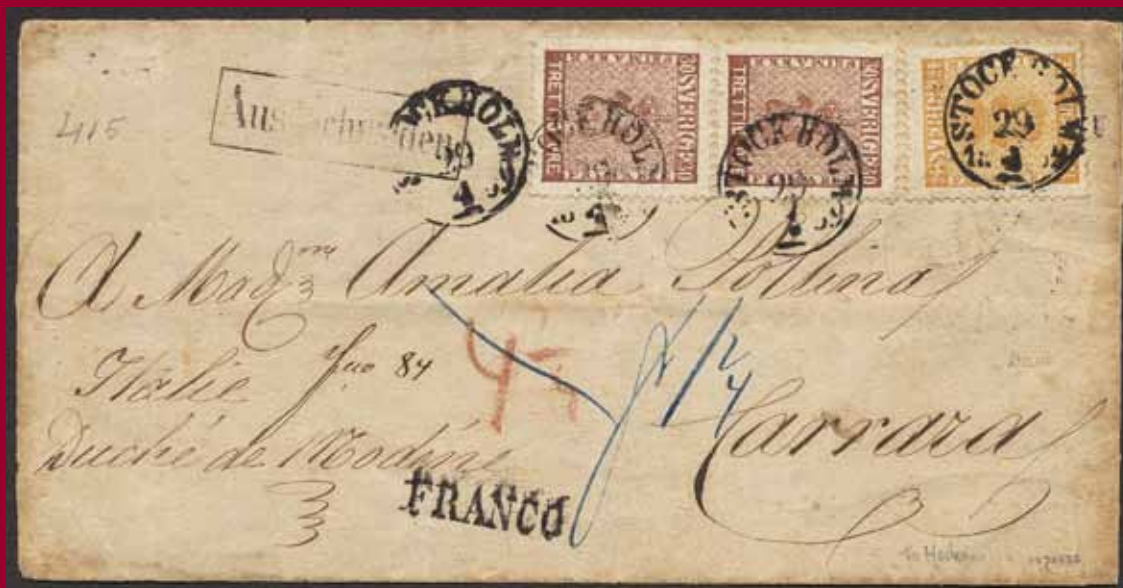 415
Aus Schweden
STOCKHOLM 29 4 1859
TRETTIO ÖRE 30 SVERIGE 30 FRIMÄRKE
STOCKHOLM 29 4 1859
TRETTIO ÖRE 30 SVERIGE 30 FRIMÄRKE
STOCKHOLM 29 4 1859
STOCKHOLM 29 4 1859
A Mad.me Amalia Pollina
Italie fuo 84
Duché de Modène
Carrara
FRANCO
To Modena